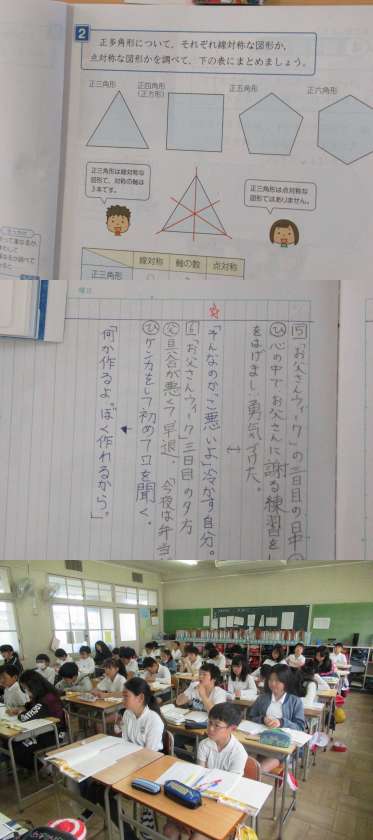 2
正多角形について、それぞれ線対称な図形か、
点対称な図形かを調べて、下の表にまとめましょう。
正三角形
正四角形
(正方形)
正五角形
正六角形
正三角形は線対称な
図形で、対称の軸は
3本です。
正三角形は点対称な
図形ではありません。
線対称
軸の数
点対称
正三角形
曜日
5 「お父さんウィーク」の三日目の日中
ひ 心の中でお父さんに謝る練習をし
をはげまし、勇気
「そんなのかっこ悪いよ」冷かす自分。
6 「お父さんウィーク」三日目の夕方
父 具合が悪くて早退、「今夜は弁当
ひ ケンカをして初めて口を聞く。
「何か作るよ。ぼく作れるから。」